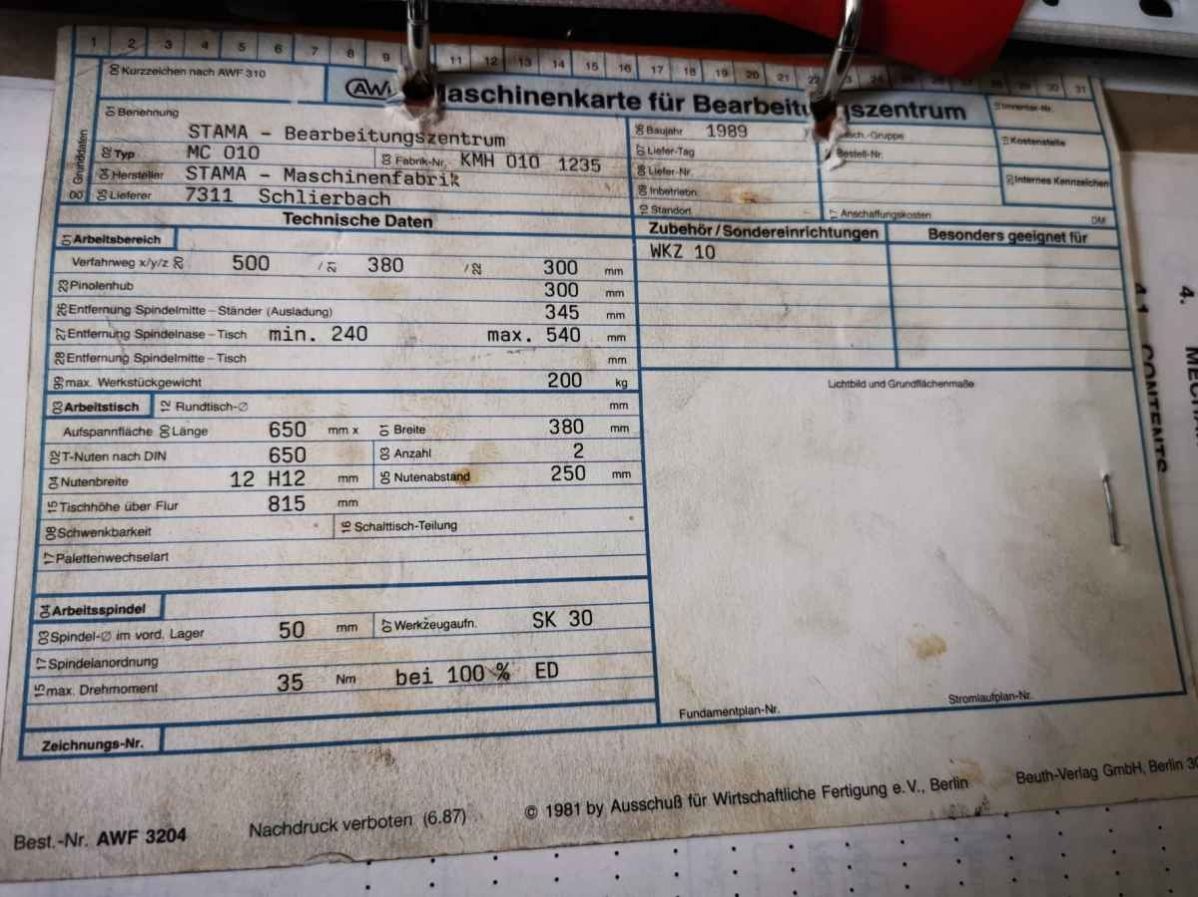 1 2 3 4 5 6 7 8 9 11 12 13 14 15 16 17 18 19 20 21 22 30 31
Kurzzeichen nach AWF 310
AWF Maschinenkarte für Bearbeitungszentrum
Grunddaten
00
01 Benennung STAMA - Bearbeitungszentrum
Typ MC 010 Fabrik-Nr. KMH 010 1235
Hersteller STAMA - Maschinenfabrik
Lieferer 7311 Schlierbach
Baujahr 1989
Liefer-Tag
Liefer-Nr.
Inbetriebn.
Standort
Masch.-Gruppe
Bestell-Nr.
Anschaffungskosten DM
Inventar-Nr.
Kostenstelle
Internes Kennzeichen
Technische Daten
Arbeitsbereich
Verfahrweg x/y/z 500 / 380 / 300 mm
Pinolenhub 300 mm
Entfernung Spindelmitte – Ständer (Ausladung) 345 mm
Entfernung Spindelnase – Tisch min. 240 max. 540 mm
Entfernung Spindelmitte – Tisch mm
max. Werkstückgewicht 200 kg
Arbeitstisch Rundtisch-∅ mm
Aufspannfläche Länge 650 mm x Breite 380 mm
T-Nuten nach DIN 650 Anzahl 2
Nutenbreite 12 H12 mm Nutenabstand 250 mm
15 Tischhöhe über Flur 815 mm
Schwenkbarkeit 16 Schalttisch-Teilung
17 Palettenwechselart
04 Arbeitsspindel
Spindel-∅ im vord. Lager 50 mm 07 Werkzeugaufn. SK 30
Spindelanordnung
15 max. Drehmoment 35 Nm bei 100 % ED
Zeichnungs-Nr.
Zubehör/Sondereinrichtungen
WKZ 10
Besonders geeignet für
Lichtbild und Grundflächenmaße
Fundamentplan-Nr. Stromlaufplan-Nr.
Best.-Nr. AWF 3204 Nachdruck verboten (6.87) © 1981 by Ausschuß für Wirtschaftliche Fertigung e. V., Berlin Beuth-Verlag GmbH, Berlin 30
4.
CONTENTS